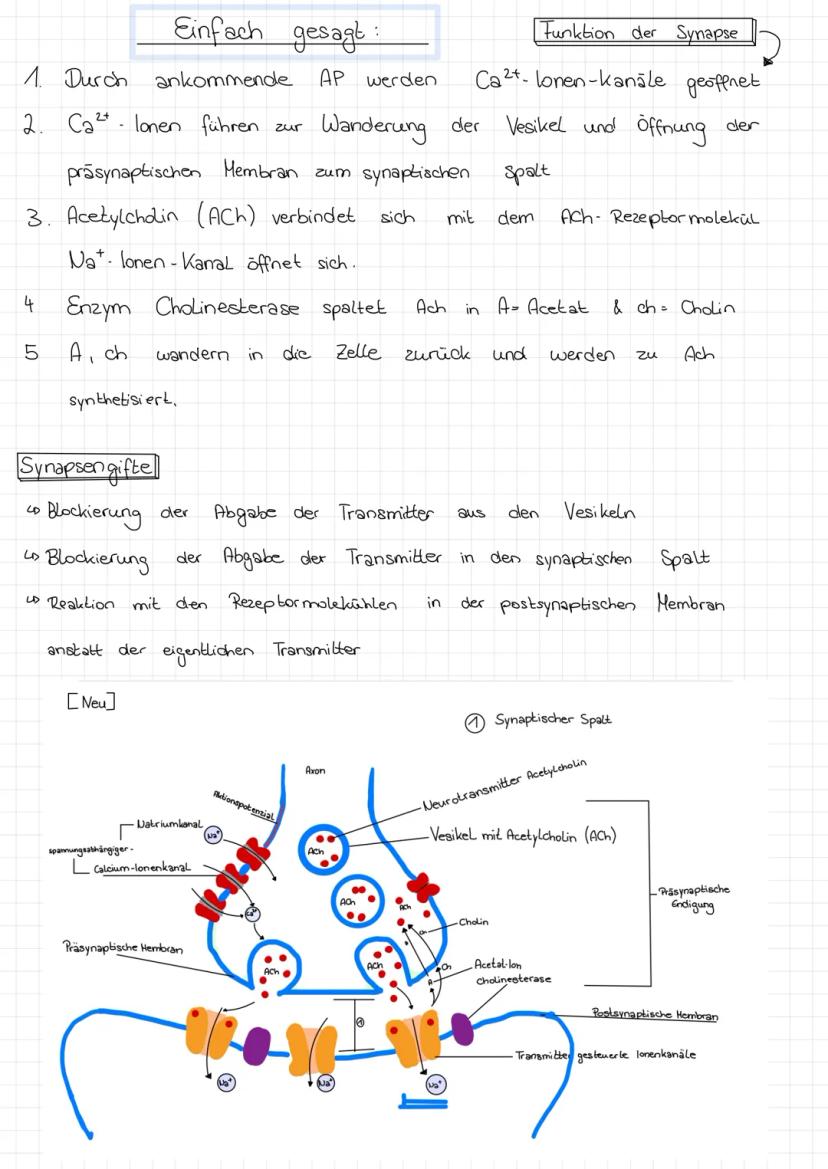 Einfach gesagt:
Funktion der Synapse
1. Durch ankommende AP werden Ca²⁺-Ionen-Kanäle geöffnet
2. Ca²⁺-Ionen führen zur Wanderung der Vesikel und Öffnung der
präsynaptischen Membran zum synaptischen Spalt
3. Acetylcholin (ACh) verbindet sich mit dem ACh-Rezeptormolekül
Na⁺-Ionen-Kanal öffnet sich.
4 Enzym Cholinesterase spaltet Ach in A= Acetat & ch= Cholin
5 A, ch wandern in die Zelle zurück und werden zu Ach
synthetisiert.
Synapsengifte
↳ Blockierung der Abgabe der Transmitter aus den Vesikeln
↳ Blockierung der Abgabe der Transmitter in den synaptischen Spalt
↳ Reaktion mit den Rezeptormolekühlen in der postsynaptischen Membran
anstatt der eigentlichen Transmitter
[Neu]
① Synaptischer Spalt
Axon
Aktionspotenzial
Neurotransmitter Acetylcholin
Natriumkanal
Na⁺
Vesikel mit Acetylcholin (ACh)
spannungsabhängiger-
Calcium-Ionenkanal
ACh
ACh
ACh
Ca²⁺
Präsynaptische
Endigung
Cholin
Ch
Präsynaptische Membran
ACh
ACh
Ch
A
Acetat-Ion
cholinesterase
Postsynaptische Membran
①
Transmitter gesteuerte Ionenkanäle
Na⁺
Na⁺
Na⁺